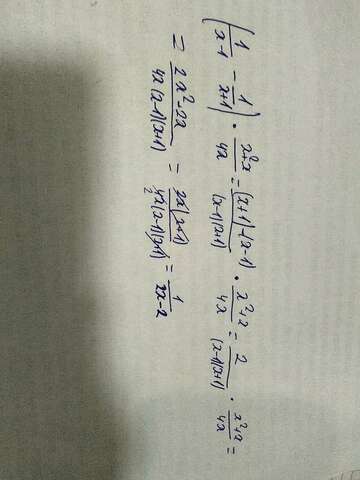 (1/(x-1) - 1/(x+1)) · (x²+x)/4x = ((x+1)-(x-1))/((x-1)(x+1)) · (x²+x)/4x = 2/((x-1)(x+1)) · (x²+x)/4x =
= (2x²+2x)/(4x(x-1)(x+1)) = 2x(x+1)/(4x(x-1)(x+1)) = 1/(2x-2)